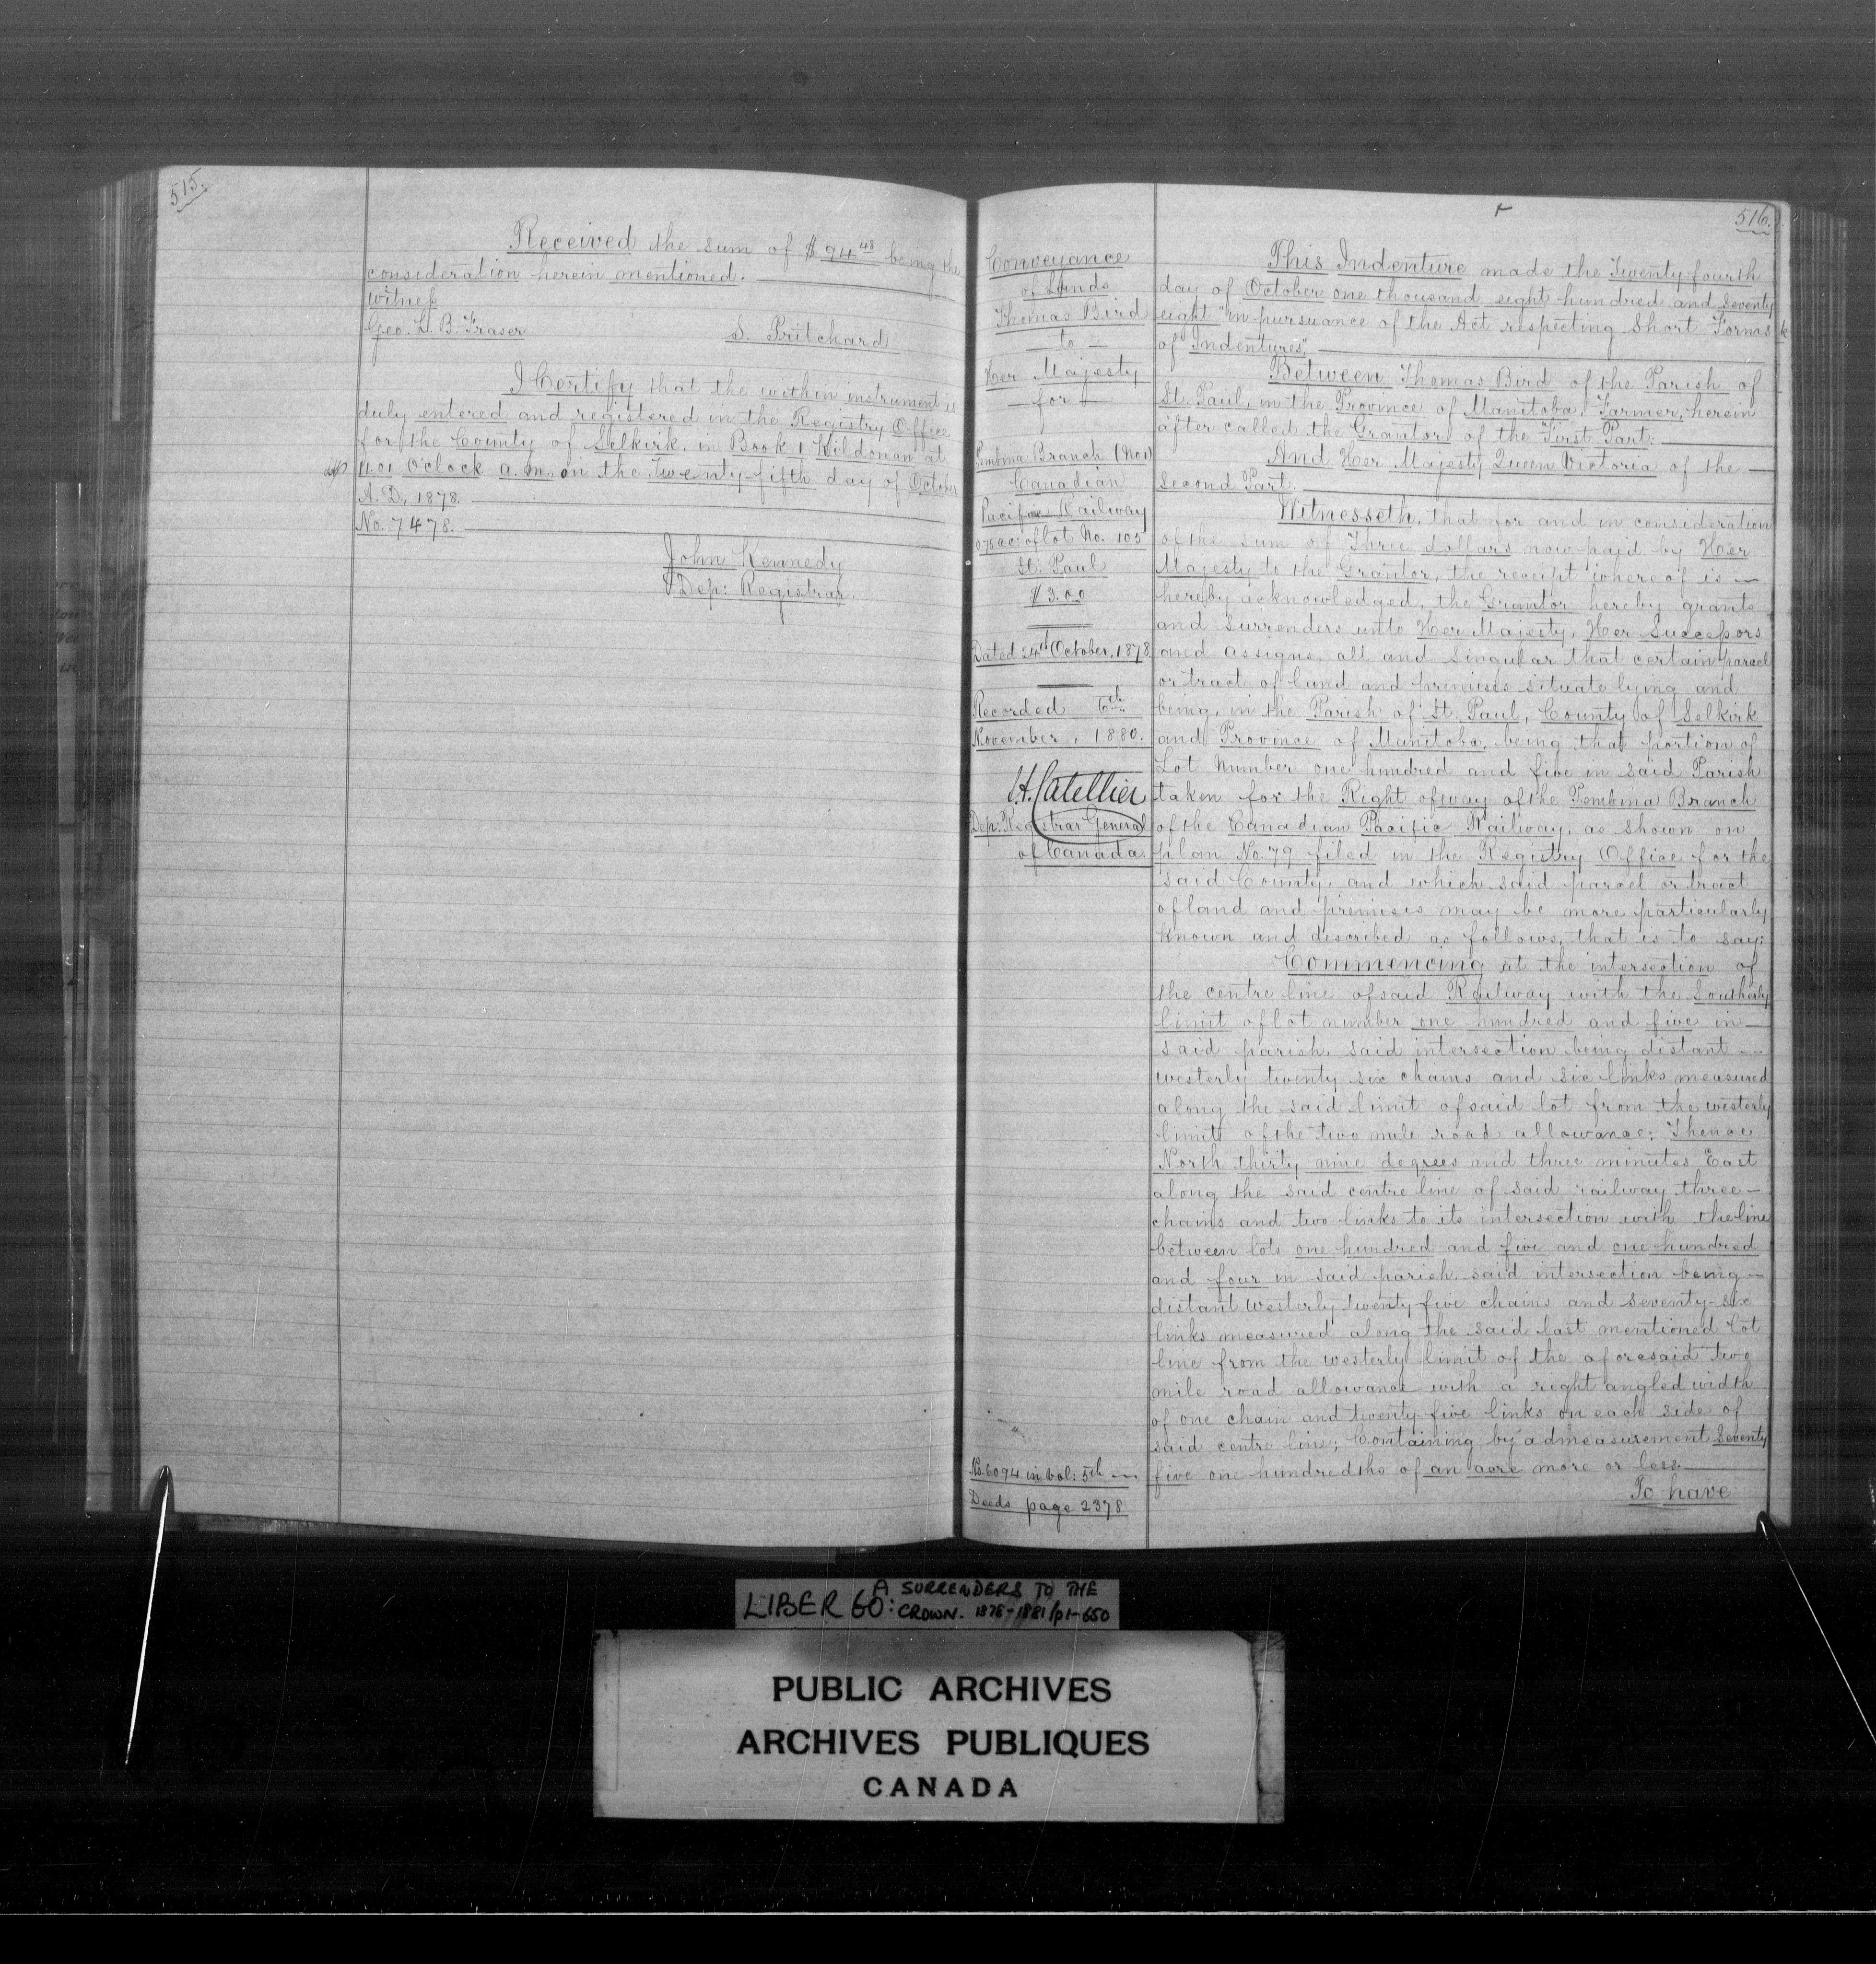 515.
Received the sum of $94.48 being the
consideration herein mentioned.
Witness
Geo. L. B. Fraser S. Pritchard
I Certify that the within instrument is
duly entered and registered in the Registry Office
for the County of Selkirk, in Book 1 Kildonan at
11.01 O'clock a.m. on the Twenty-fifth day of October
A.D. 1878.
No. 7478.
John Kennedy
Dep: Registrar.
516.
Conveyance
of Lands
Thomas Bird
— to —
Her Majesty
— for —
Pembina Branch (No 1)
Canadian
Pacific Railway
0.75 ac: of lot No. 105
St. Paul
$3.00
Dated 24th October, 1878
Recorded 6th
November, 1880.
Catellier
Dep: Registrar General
of Canada.
No. 6094 in vol: 5th —
Deeds page 2378
This Indenture made the Twenty-fourth
day of October one thousand eight hundred and seventy
eight "in pursuance of the Act respecting Short Forms
of Indentures",
Between Thomas Bird of the Parish of
St. Paul, in the Province of Manitoba, Farmer, herein
after called the Grantor of the First Part:
And Her Majesty Queen Victoria of the —
Second Part.
Witnesseth, that for and in consideration
of the sum of Three dollars now paid by Her
Majesty to the Grantor, the receipt whereof is —
hereby acknowledged, the Grantor hereby grants
and surrenders unto Her Majesty, Her Successors
and assigns, all and singular that certain parcel
or tract of land and premises situate lying and
being, in the Parish of St. Paul, County of Selkirk
and Province of Manitoba, being that portion of
Lot Number one hundred and five in said Parish
taken for the Right of way of the Pembina Branch
of the Canadian Pacific Railway, as shown on
plan No. 79 filed in the Registry Office for the
said County, and which said parcel or tract
of land and premises may be more particularly
known and described as follows, that is to say:
Commencing at the intersection of
the centre line of said Railway with the Southerly
limit of lot number one hundred and five in —
said parish, said intersection being distant —
westerly twenty six chains and six links measured
along the said limit of said lot from the westerly
limit of the two mile road allowance; Thence
North thirty nine degrees and three minutes East
along the said centre line of said railway three —
chains and two links to its intersection with the line
between lots one hundred and five and one hundred
and four in said parish, said intersection being —
distant westerly twenty five chains and seventy-six
links measured along the said last mentioned lot
line from the westerly limit of the aforesaid two
mile road allowance with a right angled width
of one chain and twenty five links on each side of
said centre line; Containing by admeasurement Seventy
five one hundredths of an acre more or less.
To have
LIBER GO: A SURRENDERS TO THE
CROWN. 1878-1881/p1-650
PUBLIC ARCHIVES
ARCHIVES PUBLIQUES
CANADA